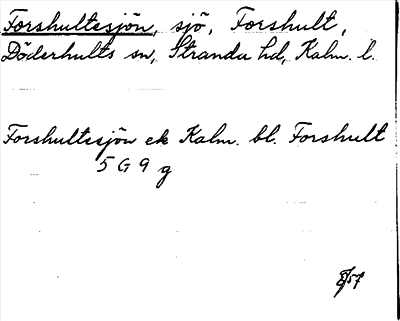 Forshultesjön, sjö, Forshult,
Döderhults sn, Stranda hd, Kalm. l.
Forshultssjön ek Kalm. bl. Forshult
5 G 9 g